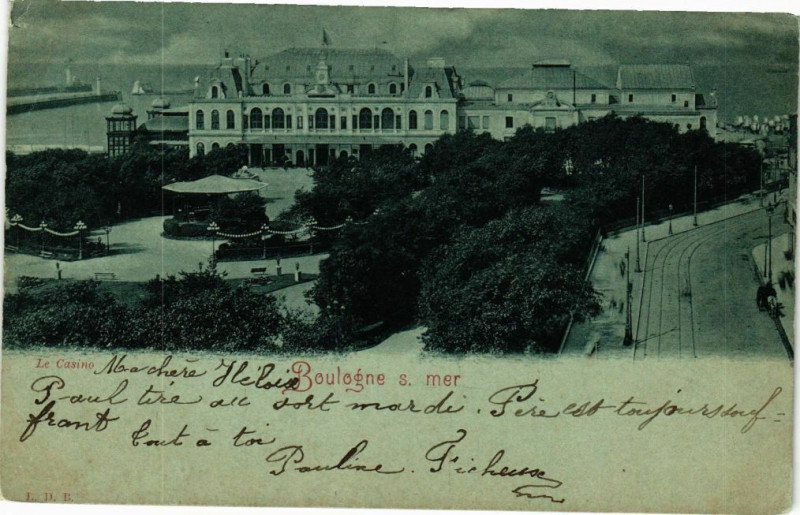 Le Casino
Ma chère Héloïse
Boulogne s. mer
Paul tire au sort mardi. Père est toujours souf=
frant Tout à toi
Pauline. Ficheux
L. D. B.